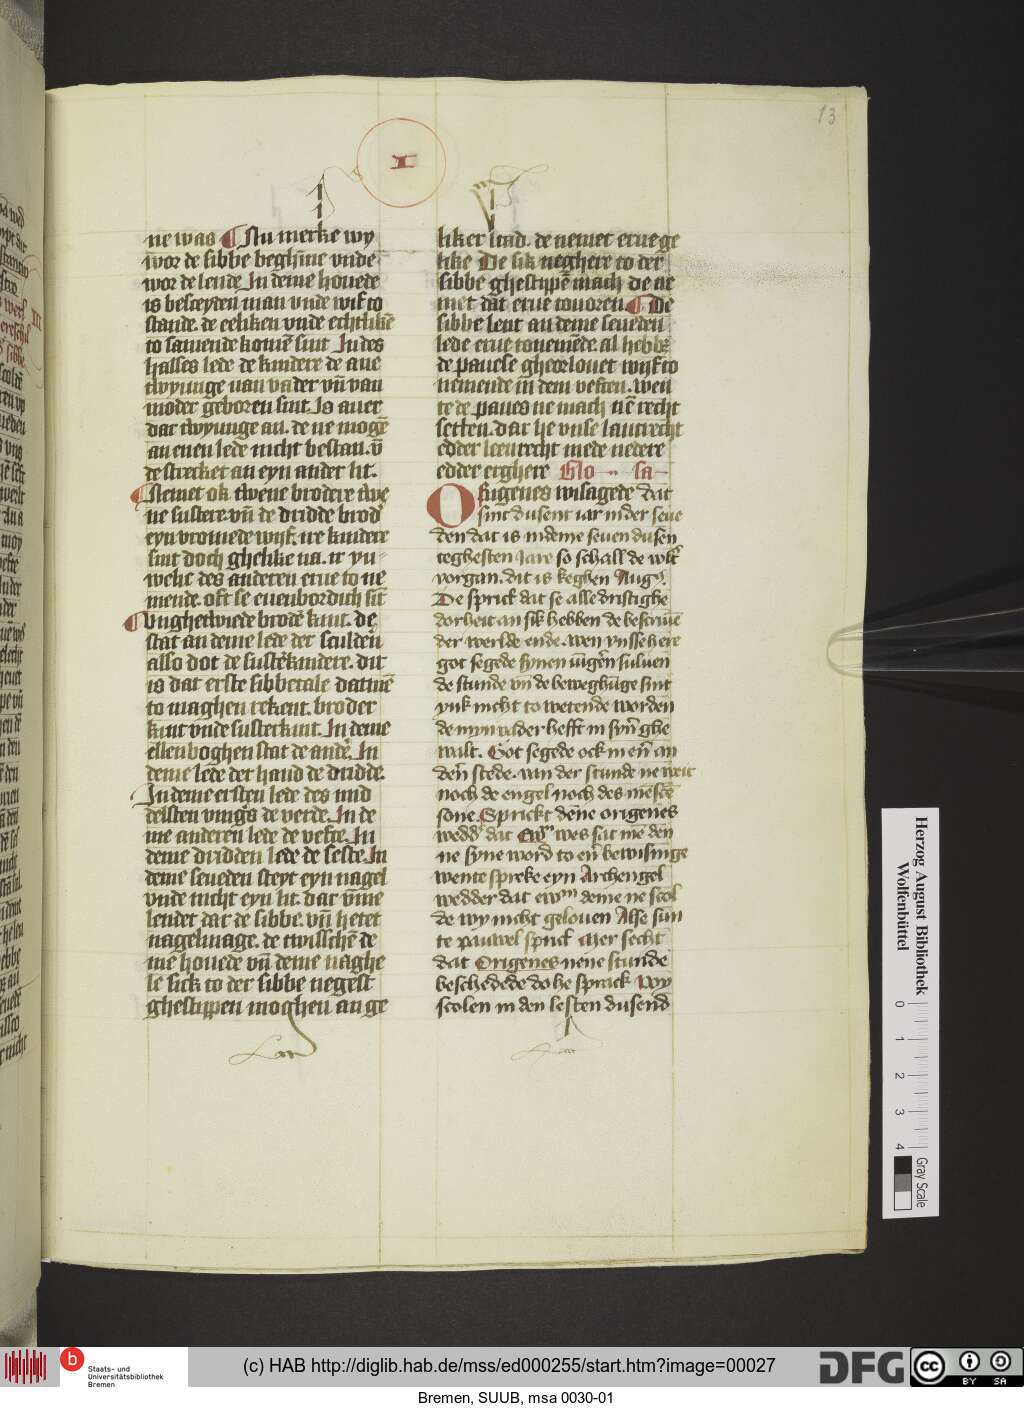 13
I
ne was ¶ Nu merke wy
wor de sibbe beghīne vnde
wor de lende In deme houede
is besceyden man vnde wif to
stande. de eeliken vnde echtlikē
to samende komē sint In des
halses lede de kindere de ane
twyunge uan vader vn̄ van
moder geboren sint. Is auer
dar twyunge an. de ne mogē
an enen lede nicht bestan. v̄n
de strecket an eyn ander lit.
¶ Nemet ok twene brodere twe
ne sustere. vn̄ de dridde brod'
eyn vromede wyf. ire kindere
sint doch ghelike na. ir yn
welic des anderen erue to ne
mende. oft se euenbordich sīt
¶ Vnghetwiede broder kint. de
stat an deme lede der sculdern
also dot de susterkindere. dit
is dat erste sibbetale datmē
to maghen rekent. broder
kint vnde susterkint. In deme
ellenboghen stat de ander. In
deme lede der hand de dridde.
In deme ersten lede des mid
delsten vingers de verde. In de
me anderen lede de vefte. In
deme dridden lede de seste. In
deme seueden steyt eyn nagel
vnde nicht eyn lit. dar v̄me
lendet dar de sibbe. vn̄ hetet
nagelmage. de twisschē de
me houede vn̄ deme naghe
le sick to der sibbe negest
ghestuppen moghen an ge
liker stad. de nemet erue ge
like De sik neghere to der
sibbe ghestuppē mach de ne
met dat erue touoren ¶ De
sibbe lent an deme seueden
lede erue tonemēde. al hebbe
de pauese gheorlouet wyf to
nemende in dem veften. wen
te de paues ne mach nē recht
setten. dar he vnse lantrecht
edder leenrecht mede nedere
edder erghere Glo sa
Origenes wisagede dat
sint dusent iar in der seue
den dat is in deme seuen dusen
teghesten Jare so schall de wlt
vorgan. dit is keghen Aug9.
De sprict dat se alle dristighe
dorheit an sik hebben de bescriuē
der werlde ende. wen vnse here
got segede synen iūgern suluen
de stunde vn̄ de beweghūge sint
ynk nicht to wetende worden
de myn vader hefft in syn' ghe
walt. Got segede ock in en' an
dern stede. van der stunde ne weit
noch de engel noch des mēschē
sone. Sprickt dēne origenes
wedd' dat Ewm wes sat me den
ne syne word to en' bewisinge
wente spreke eyn Archengel
wedder dat ewm deme ne scol
de wy nicht gelouen Alse sun
te pauwel sprict Mer secht
dat Origenes nene stunde
beschedede do he sprack wy
scolen in den lesten dusend
Herzog August Bibliothek
Wolfenbüttel
0 1 2 3 4
Gray Scale
Staats- und
Universitätsbibliothek
Bremen
(c) HAB http://diglib.hab.de/mss/ed000255/start.htm?image=00027
DFG
cc BY SA
Bremen, SUUB, msa 0030-01